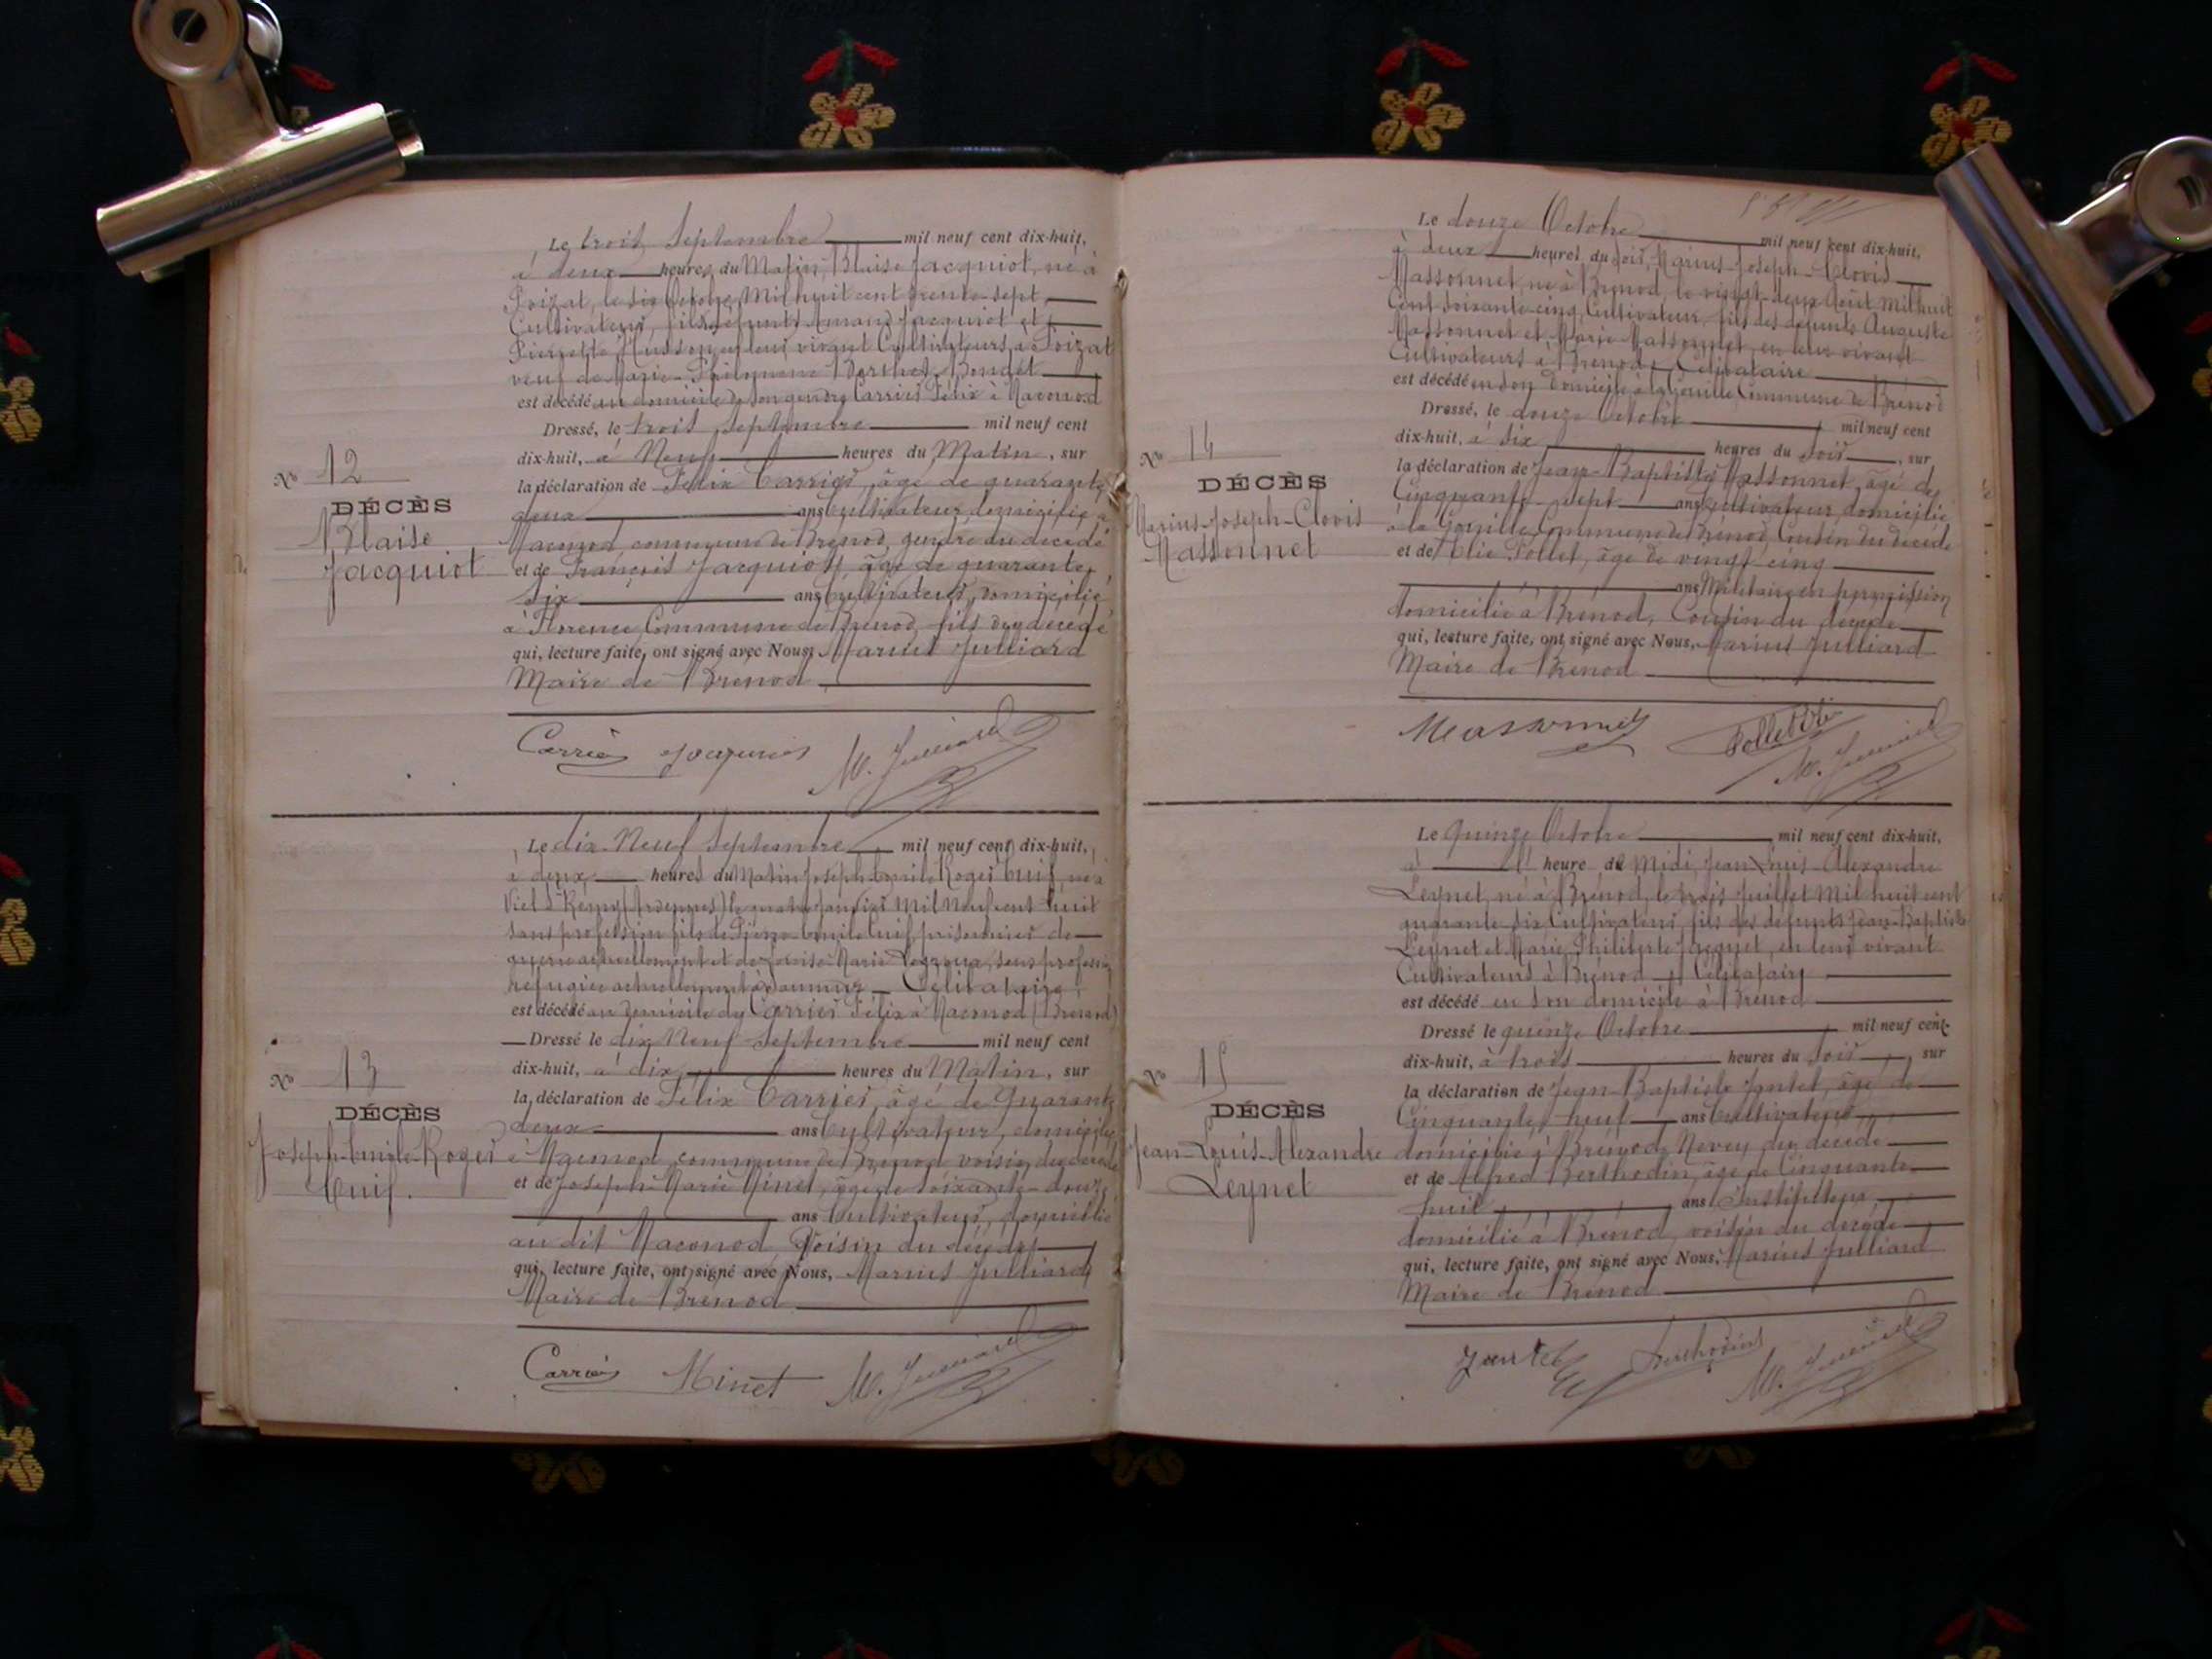 Le trois Septembre mil neuf cent dix-huit,
à deux heures du Matin, Blaise Jacquiot, né à
Poizat, le six Octobre Mil huit cent trente-sept
Cultivateur, fils défunts Amand Jacquiot et
Pierrette Husson, en leur vivant Cultivateurs à Poizat
veuf de Marie-Philomène Berthet-Bondet
est décédé au domicile de son gendre Carrier Félix à Maconod
Dressé, le trois Septembre mil neuf cent
dix-huit, à Neuf heures du Matin, sur
la déclaration de Félix Carrier, âgé de quarante
deux ans Cultivateur, domicilié à
Maconod, commune de Brénod, gendre du décédé
et de François Jacquiot, âgé de quarante
six ans Cultivateur, domicilié
à Florence Commune de Brénod, fils du décédé
qui, lecture faite, ont signé avec Nous, Marius Julliard
Maire de Brénod
Carrier Jacquiot M. Julliard
No 12
DÉCÈS
Blaise
Jacquiot
Le dix-Neuf Septembre mil neuf cent dix-huit,
à deux heures du Matin Joseph-Emile-Roger Cuif, né à
Viel St Remy (Ardennes) le quatre Janvier Mil Neuf cent huit
sans profession fils de Emile Cuif, prisonnier de
guerre actuellement et de Marie sans profession
réfugiée actuellement à Célibataire,
est décédé au domicile de Carrier Félix à Maconod (Brénod)
Dressé le dix Neuf Septembre mil neuf cent
dix-huit, à dix heures du Matin, sur
la déclaration de Félix Carrier, âgé de Quarante
deux ans Cultivateur, domicilié
à Maconod, commune de Brénod voisin du décédé
et de Joseph-Marie Minet, âgé de soixante-douze
ans Cultivateur, domicilié
au dit Maconod, Voisin du décédé
qui, lecture faite, ont signé avec Nous, Marius Julliard
Maire de Brénod
Carrier Minet M. Julliard
No 13
DÉCÈS
Joseph-Emile-Roger
Cuif.
Le douze Octobre mil neuf cent dix-huit,
à deux heures du soir, Marius-Joseph-Clovis
Massonnet, né à Brénod, le vingt-deux Août Mil huit
Cent soixante-cinq, Cultivateur, fils des défunts Auguste
Massonnet et Marie Massonnet, en leur vivant
Cultivateurs à Brénod, Célibataire
est décédé en son domicile à la Gouille Commune de Brénod
Dressé, le douze Octobre mil neuf cent
dix-huit, à six heures du soir, sur
la déclaration de Jean-Baptiste Massonnet, âgé de
Cinquante-sept ans Cultivateur, domicilié
à la Gouille, Commune de Brénod, Cousin du décédé
et de Elie Follet, âgé de vingt cinq
ans Militaire en permission
domicilié à Brénod, Cousin du décédé
qui, lecture faite, ont signé avec Nous, Marius Julliard
Maire de Brénod
Massonnet Follet Elie
M. Julliard
No 14
DÉCÈS
Marius-Joseph-Clovis
Massonnet
Le quinze Octobre mil neuf cent dix-huit,
à heure de Midi, Jean-Louis-Alexandre
Leynet, né à Brénod, le trois Juillet Mil huit cent
quarante-six Cultivateur, fils des défunts Jean-Baptiste
Leynet et Marie Philiberte en leur vivant
Cultivateurs à Brénod, Célibataire
est décédé en son domicile à Brénod
Dressé le quinze Octobre mil neuf cent
dix-huit, à trois heures du soir, sur
la déclaration de Jean-Baptiste Jantet, âgé de
Cinquante neuf ans Cultivateur
domicilié à Brénod, Neveu du décédé
et de Alfred Berthodin, âgé de Cinquante
huit ans Instituteur
domicilié à Brénod, voisin du décédé
qui, lecture faite, ont signé avec Nous, Marius Julliard
Maire de Brénod
Jantet Berthodin
M. Julliard
No 15
DÉCÈS
Jean-Louis-Alexandre
Leynet